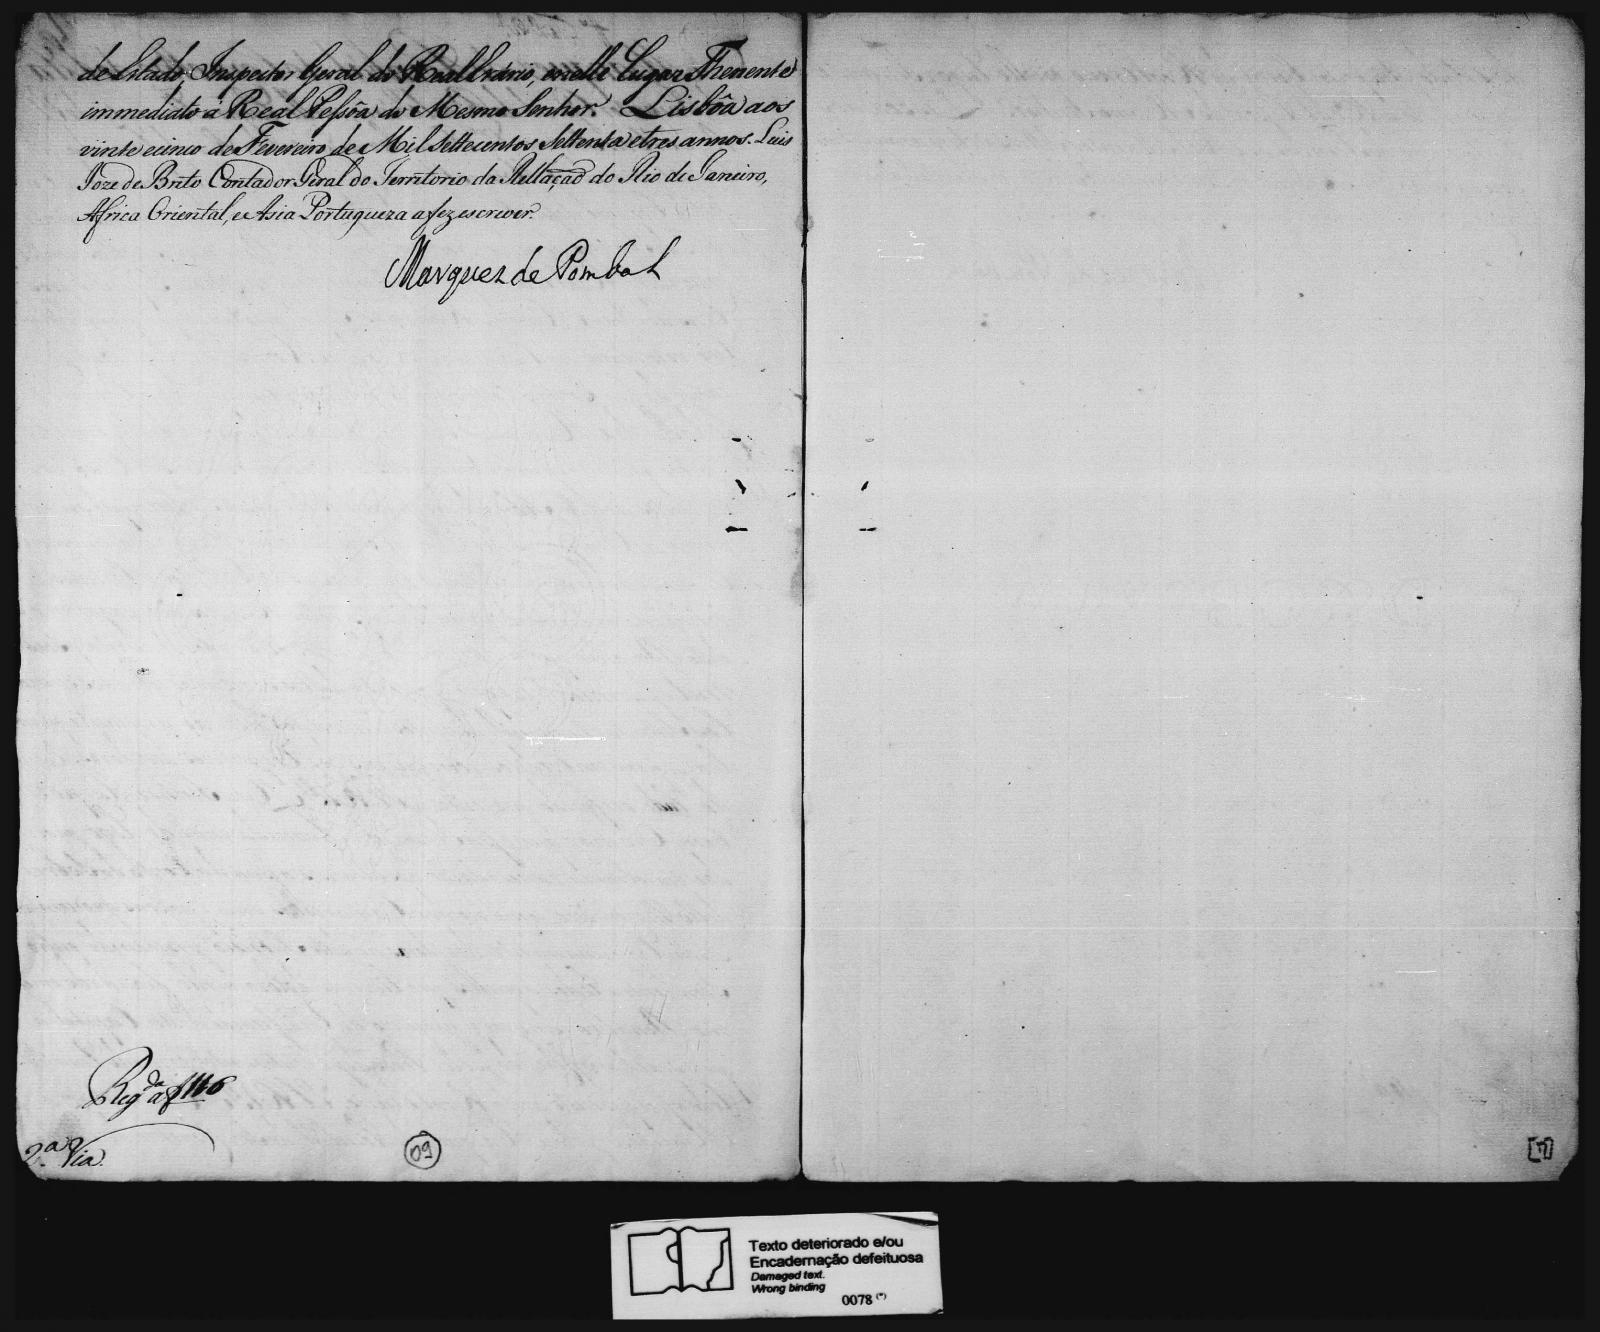 de Estado, Inspector Geral do Real Erário, e nelle Lugar Thenente
immediato á Real Pessôa do Mesmo Senhor. Lisbôa aos
vinte e cinco de Fevereiro de Mil Settecentos Settenta e tres annos. Luis
Joze de Brito Contador Geral do Territorio da Rellaçaõ do Rio de Janeiro,
Africa Oriental, e Asia Portugueza a fez escrever.
Marquez de Pombal
Reg.da a f 116
2.a Via.
09
[7]
Texto deteriorado e/ou
Encadernação defeituosa
Damaged text.
Wrong binding
0078 (*)